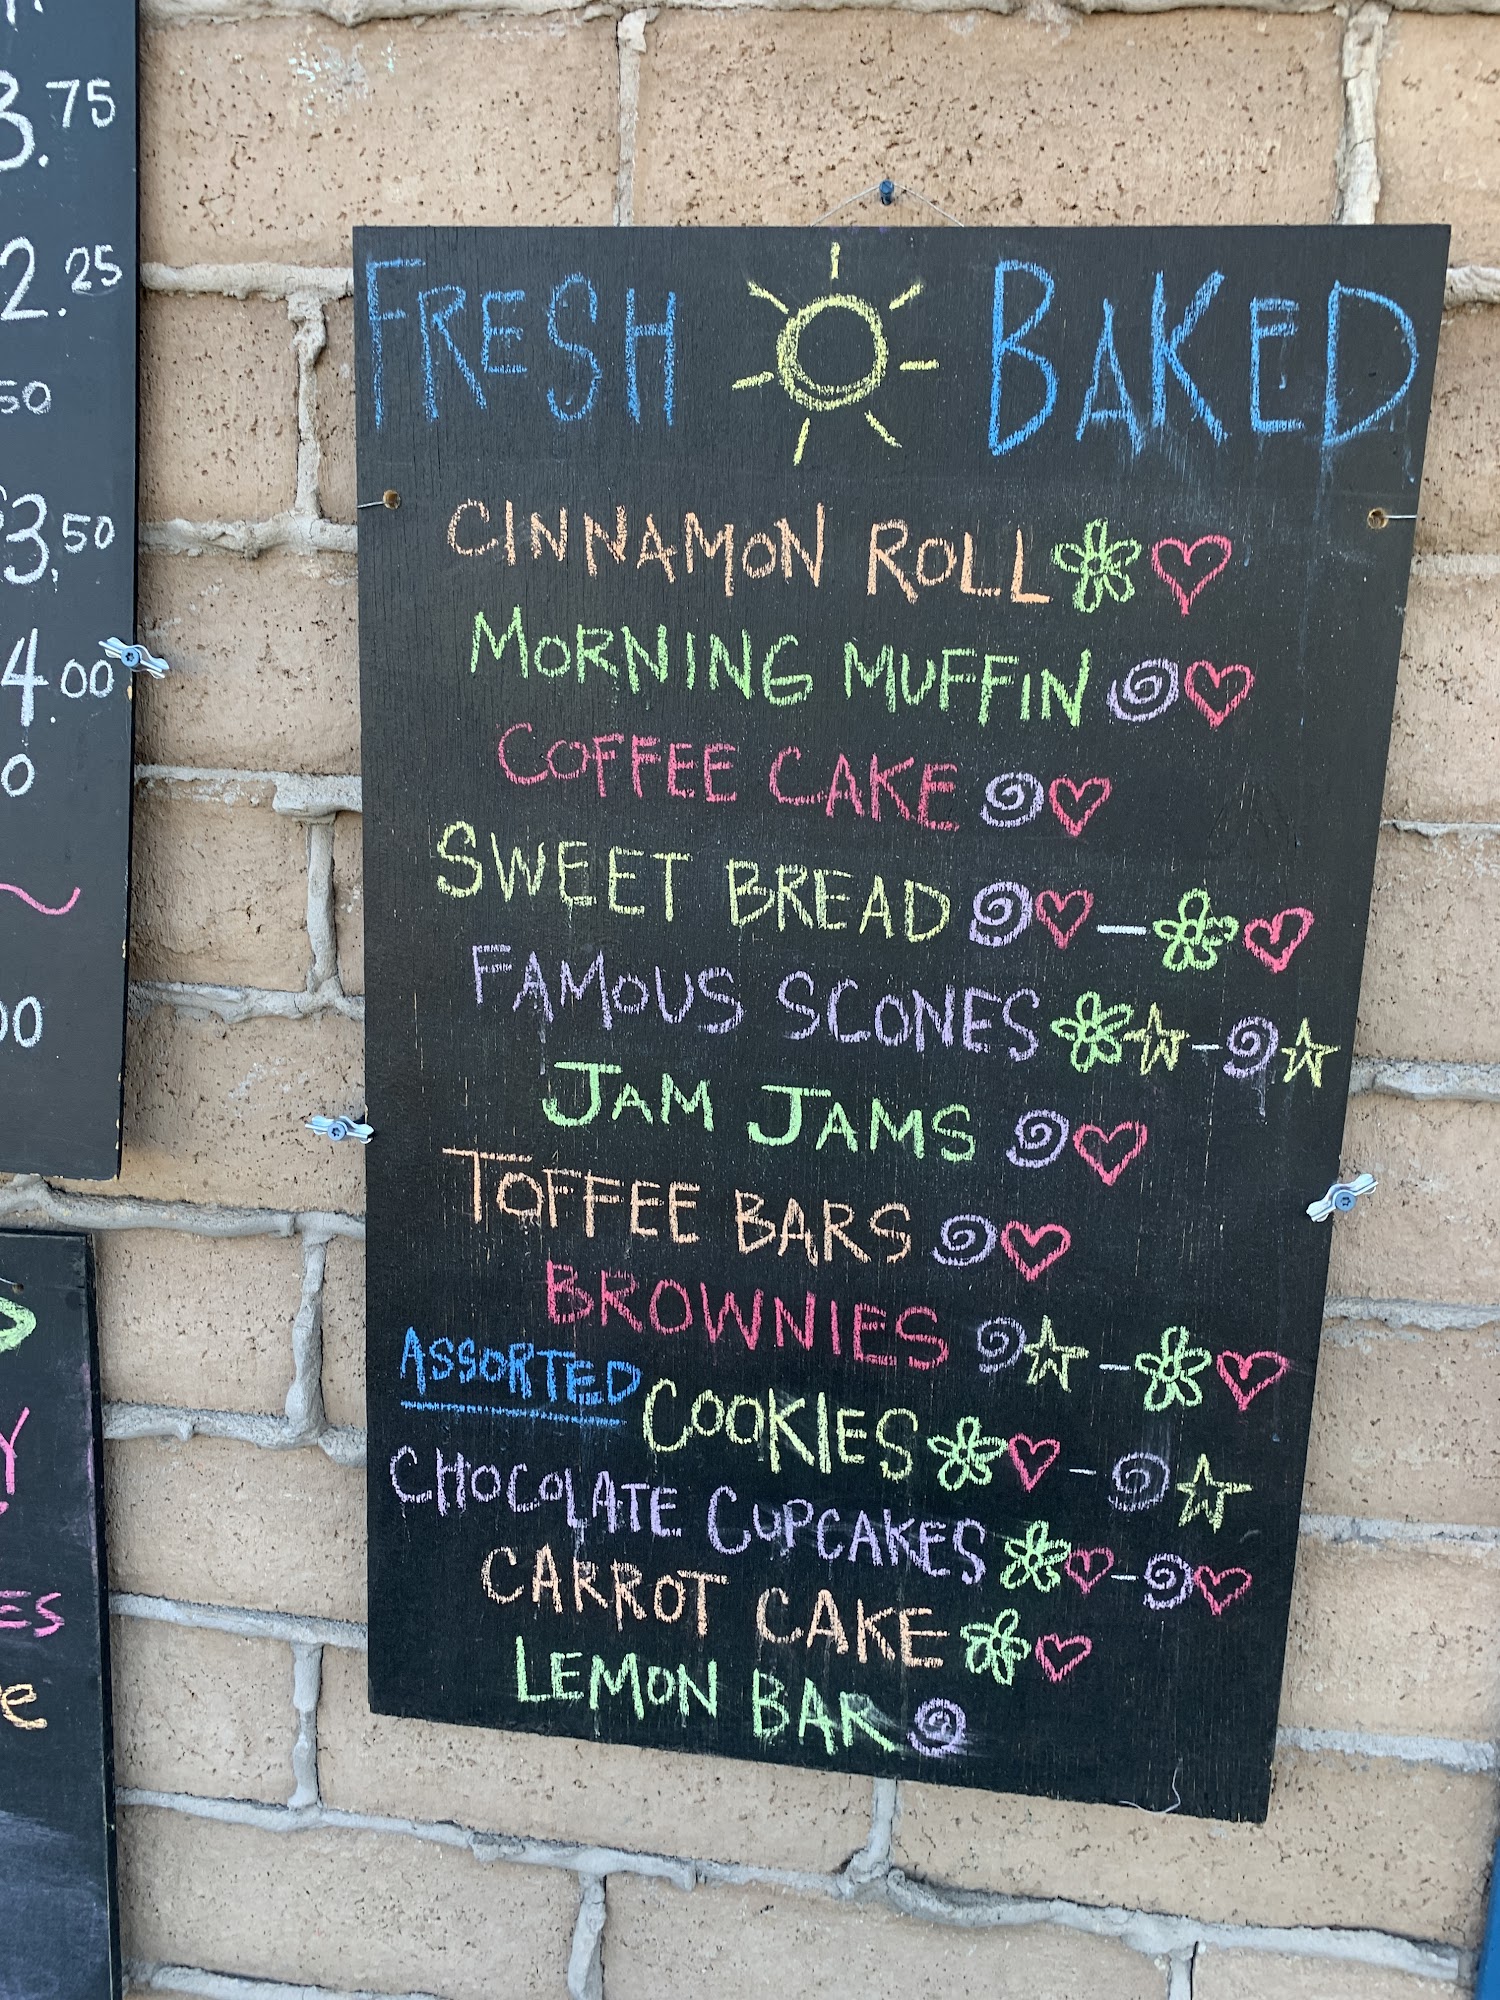 3.75
2.25
50
3.50
4.00
0
00
FRESH BAKED
CINNAMON ROLL
MORNING MUFFIN
COFFEE CAKE
SWEET BREAD
FAMOUS SCONES
JAM JAMS
TOFFEE BARS
BROWNIES
ASSORTED COOKIES
CHOCOLATE CUPCAKES
CARROT CAKE
LEMON BAR
Y
ES
e